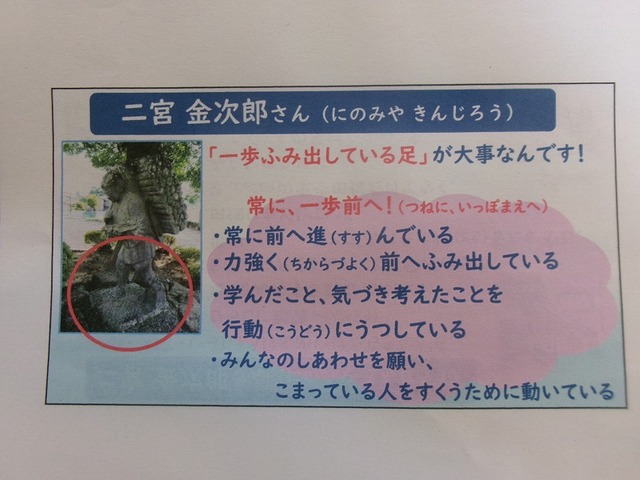 二宮 金次郎さん（にのみや きんじろう）
「一歩ふみ出している足」が大事なんです！
常に、一歩前へ！（つねに、いっぽまえへ）
・常に前へ進（すす）んでいる
・力強く（ちからづよく）前へふみ出している
・学んだこと、気づき考えたことを
行動（こうどう）にうつしている
・みんなのしあわせを願い、
こまっている人をすくうために動いている